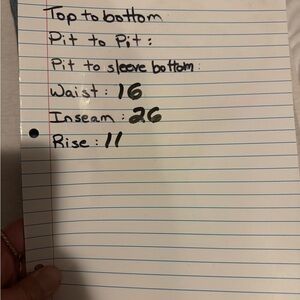 Top to bottom
Pit to Pit :
Pit to sleeve bottom :
Waist : 16
Inseam : 26
Rise : 11